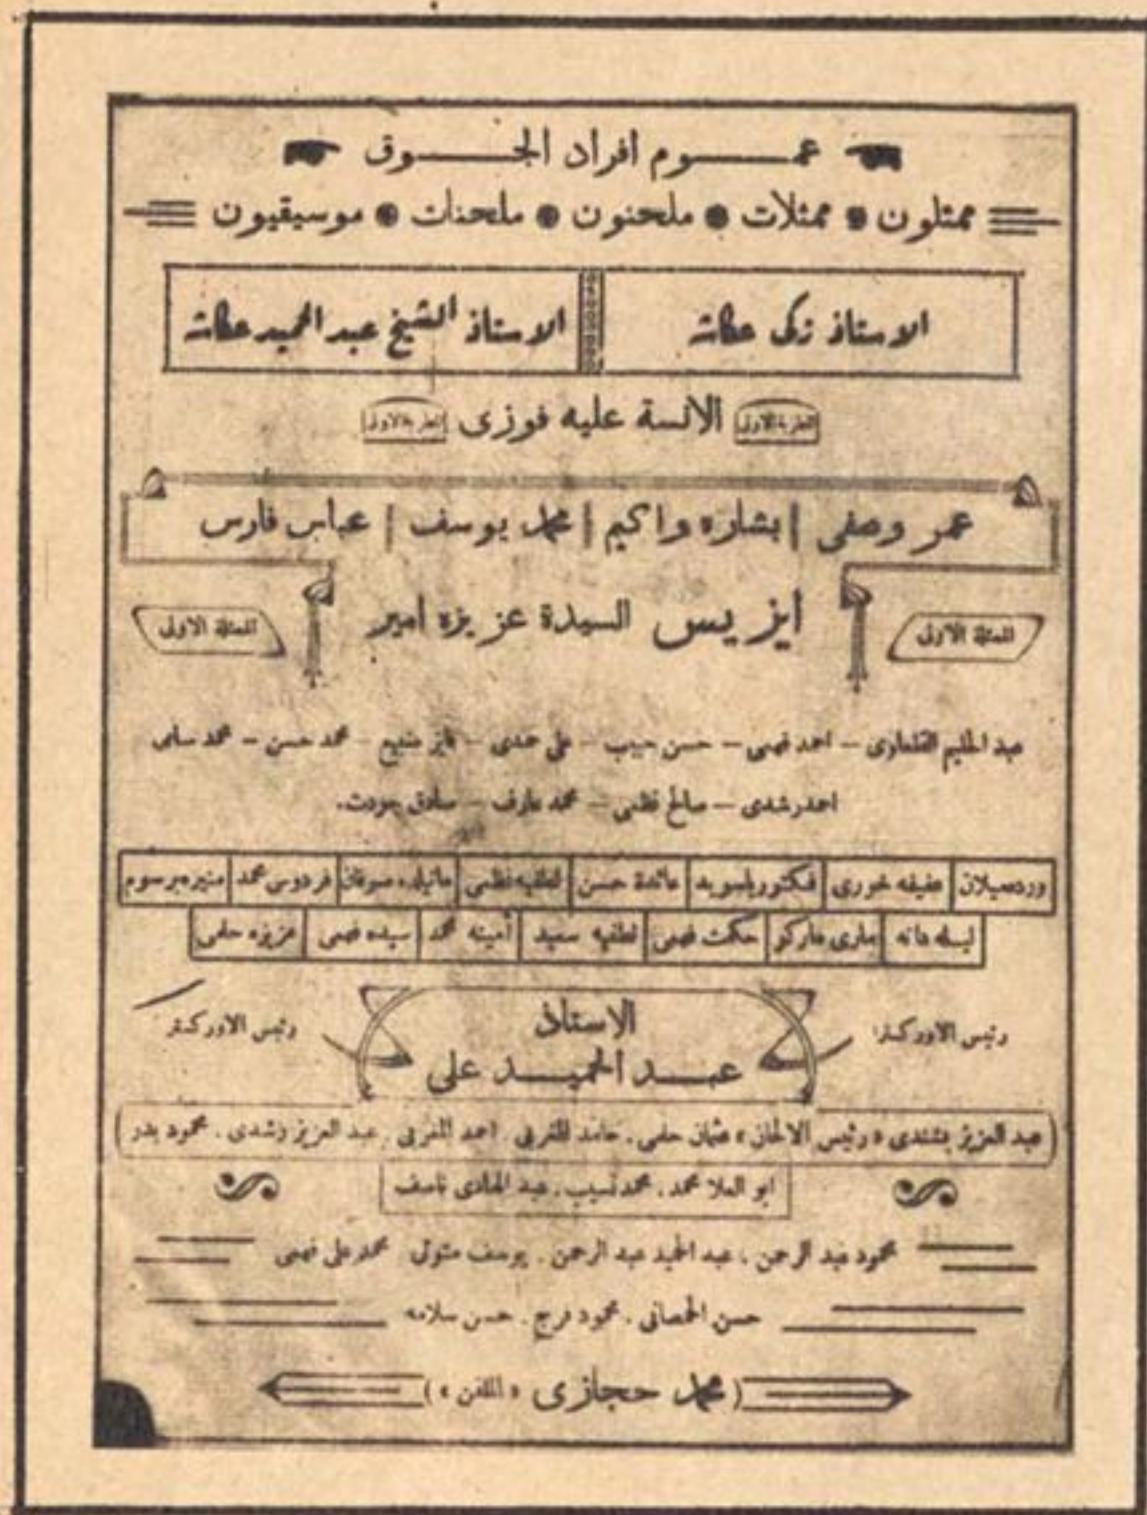 عموم افراد الجوق
ممثلون • ممثلات • ملحنون • ملحنات • موسيقيون
الاستاذ زكى عكاشه الاستاذ الشيخ عبد الحميد عكاشه
المطربة الاولى الانسة عليه فوزى المطربة الاولى
عمر وصفى | بشاره واكيم | محمد يوسف | عباس فارس
الممثلة الاولى ايزيس السيدة عزيزه امير الممثلة الاولى
عبد الحليم القلعاوى – احمد فهمى – حسن حبيب – على حمدى – فايز منيع – محمد حسن – محمد سامى
احمد رشدى – صالح نظمى – محمد عارف – صادق جودت.
ورد ميلان عفيفه خورى فكتوريا سويد عائدة حسن لطفيه نظمى ماتيلده صوفان فردوس محمد منيره برسوم
ليله مانه مارى ماركو حكمت فهمى لطفيه سعيد أمينه محمد سيده فهمى عزيزه حلمى
رئيس الاوركسترا الاستاذ رئيس الاوركستر
عبد الحميد على
عبد العزيز بشندى «رئيس الالحان» عثمان حلمى. حامد المغربى احمد المغربى. عبد العزيز رشدى. محمود بدر
ابو العلا محمد. محمد نسيب. عبد الهادى ناصف
محمود عبد الرحمن. عبد الحميد عبد الرحمن. يوسف متولى محمد على فهمى
حسن الحمصانى. محمود فرج. حسن سلامه
(محمد حجازى «الملقن»)